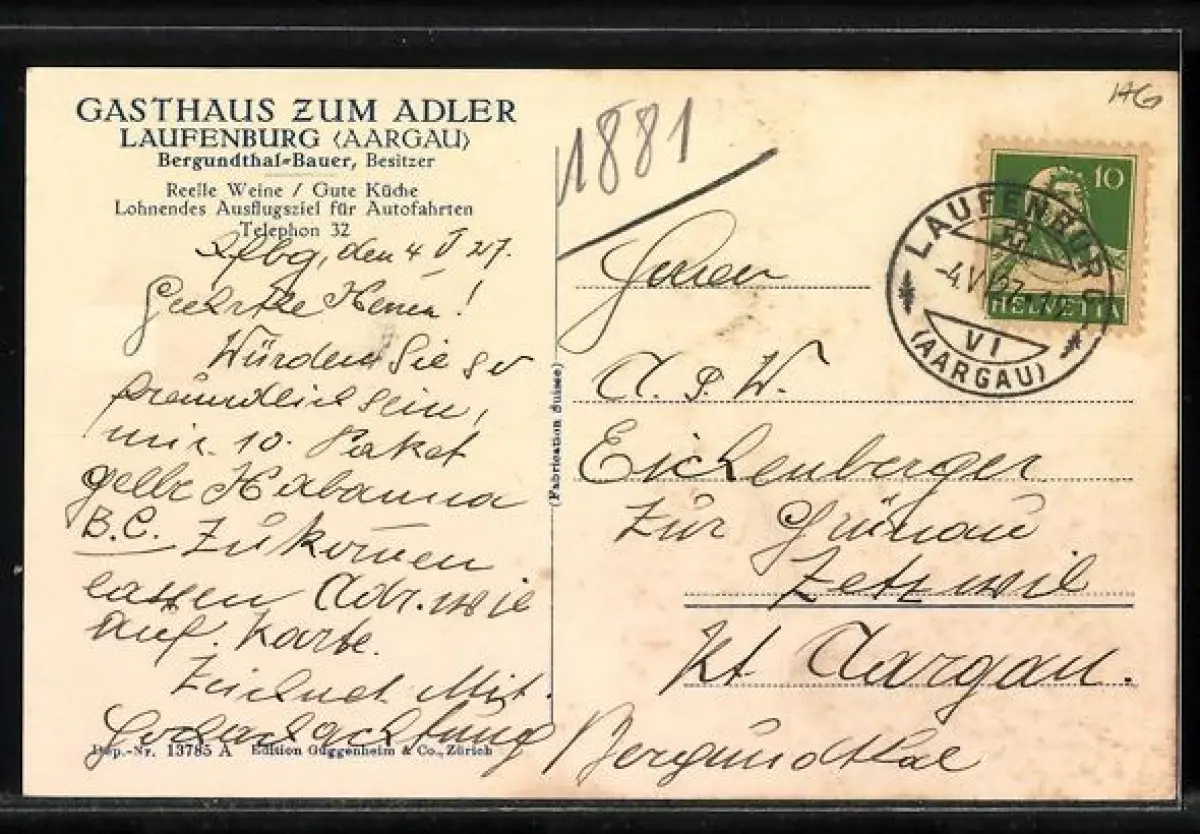 GASTHAUS ZUM ADLER
LAUFENBURG (AARGAU)
Bergundthal-Bauer, Besitzer
Reelle Weine / Gute Küche
Lohnendes Ausflugsziel für Autofahrten
Telephon 32
Lfbg, den 4 V 27.
Geehrte Herren!
Würden Sie so
freundlich sein,
mir 10. Paket
gelbe Habanna
B.C. zukomen
lassen Adr. wie
auf. Karte.
Zeichnet Mit.
Hochachtung
Bergundthal
Dep.-Nr. 13785 A Edition Guggenheim & Co., Zürich
(Fabrication Suisse)
1881
AG
Herren
A. & W.
Eichenberger
zur Grünau
Zetzwil
Kt Aargau.
10
HELVETIA
LAUFENBURG
-4.V. 27
VI
(AARGAU)